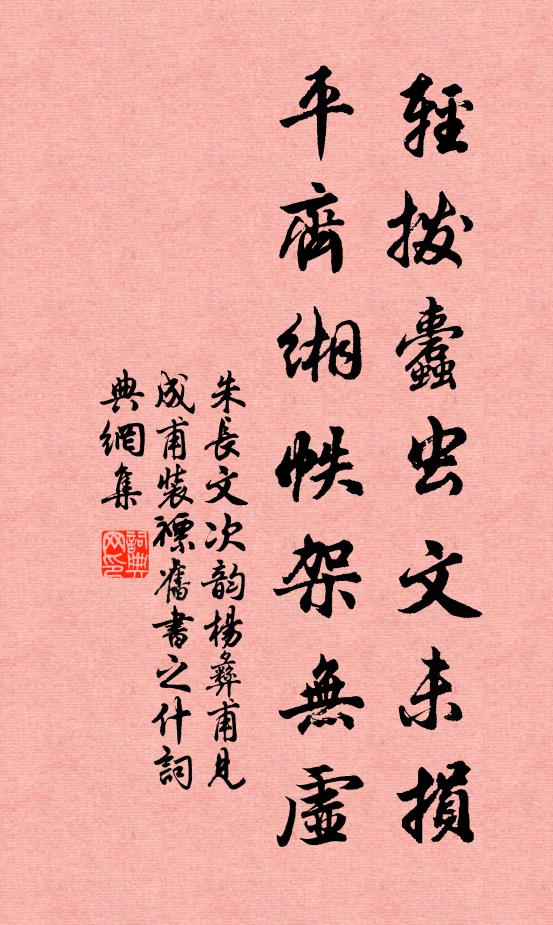 輕拨蠹虫文未損
平齊缃帙架無虛
朱長文次韵楊彝甫見
成甫裝褾舊書之什詞
典網集
詞典
网印